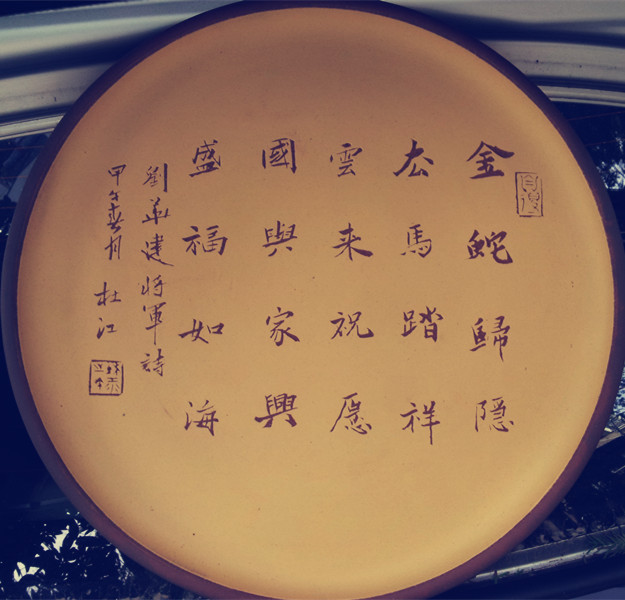 金蛇歸隱
馬踏祥
雲来祝愿
國與家興
盛福如海
劉華建將軍詩
甲午春月 杜江